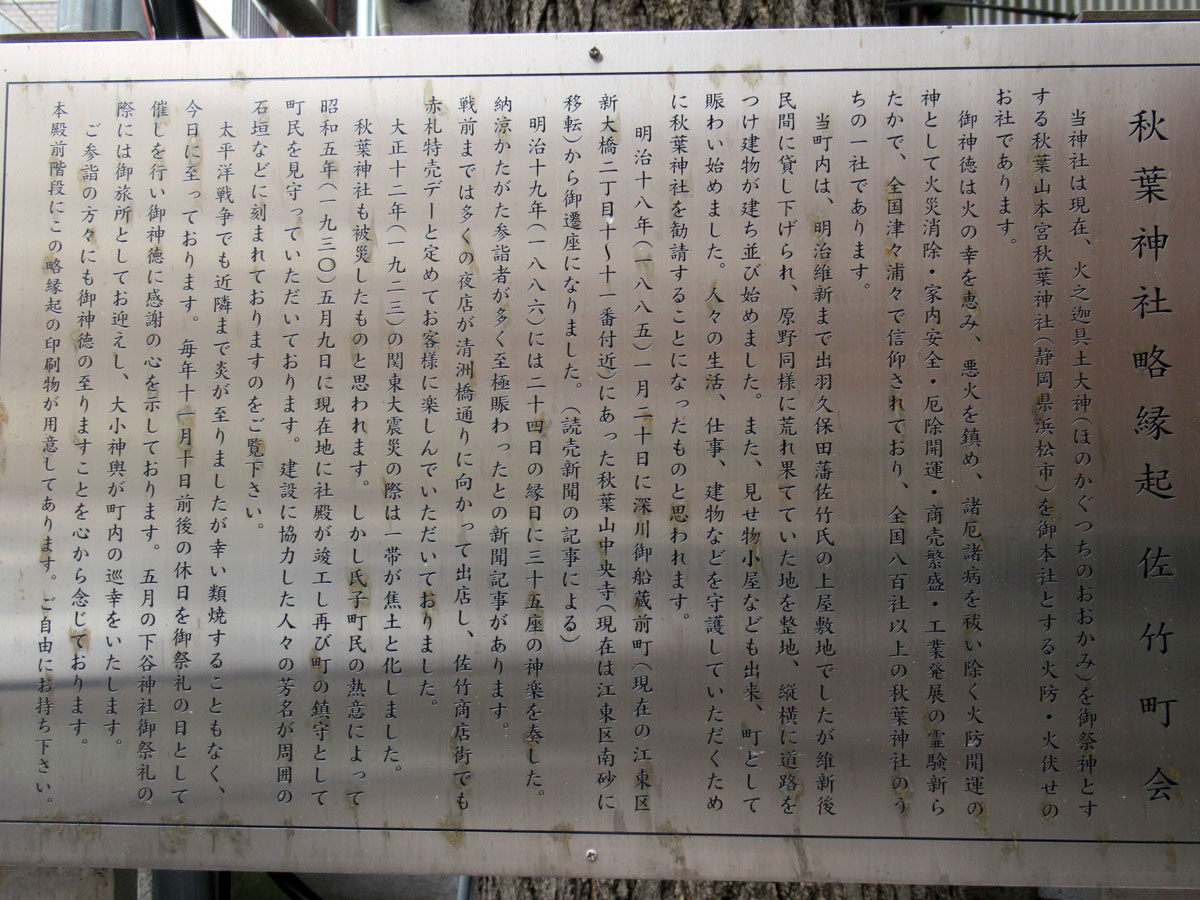 秋葉神社略縁起　佐竹町会
当神社は現在、火之迦具土大神（ほのかぐつちのおおかみ）を御祭神とす
る秋葉山本宮秋葉神社（静岡県浜松市）を御本社とする火防・火伏せの
お社であります。
御神徳は火の幸を恵み、悪火を鎮め、諸厄諸病を祓い除く火防開運の
神として火災消除・家内安全・厄除開運・商売繁盛・工業発展の霊験新ら
たかで、全国津々浦々で信仰されており、全国八百社以上の秋葉神社のう
ちの一社であります。
当町内は、明治維新まで出羽久保田藩佐竹氏の上屋敷地でしたが維新後
民間に貸し下げられ、原野同様に荒れ果てていた地を整地、縦横に道路を
つけ建物が建ち並び始めました。また、見せ物小屋なども出来、町として
賑わい始めました。人々の生活、仕事、建物などを守護していただくため
に秋葉神社を勧請することになったものと思われます。
明治十八年（一八八五）一月二十日に深川御船蔵前町（現在の江東区
新大橋二丁目十～十一番付近）にあった秋葉山中央寺（現在は江東区南砂に
移転）から御遷座になりました。（読売新聞の記事による）
明治十九年（一八八六）には二十四日の縁日に三十五座の神楽を奏した。
納涼かたがた参詣者が多く至極賑わったとの新聞記事があります。
戦前までは多くの夜店が清洲橋通りに向かって出店し、佐竹商店街でも
赤札特売デーと定めてお客様に楽しんでいただいておりました。
大正十二年（一九二三）の関東大震災の際は一帯が焦土と化しました。
秋葉神社も被災したものと思われます。しかし氏子町民の熱意によって
昭和五年（一九三〇）五月九日に現在地に社殿が竣工し再び町の鎮守として
町民を見守っていただいております。建設に協力した人々の芳名が周囲の
石垣などに刻まれておりますのをご覧下さい。
太平洋戦争でも近隣まで炎が至りましたが幸い類焼することもなく、
今日に至っております。毎年十一月十日前後の休日を御祭礼の日として
催しを行い御神徳に感謝の心を示しております。五月の下谷神社御祭礼の
際には御旅所としてお迎えし、大小神輿が町内の巡幸をいたします。
ご参詣の方々にも御神徳の至りますことを心から念じております。
本殿前階段にこの略縁起の印刷物が用意してあります。ご自由にお持ち下さい。